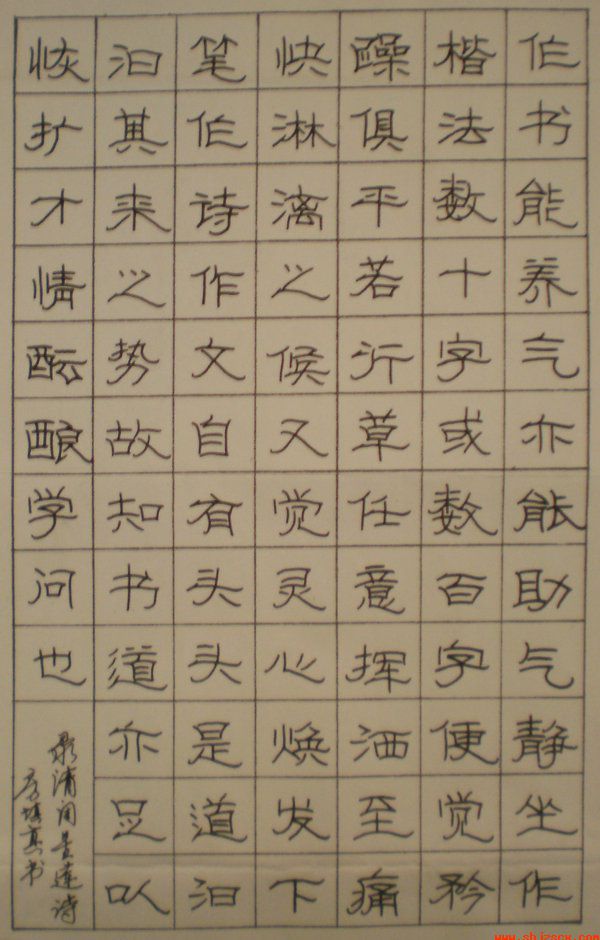 作书能养气亦能助气静坐作
楷法数十字或数百字便觉矜
躁俱平若行草任意挥洒至痛
快淋漓之候又觉灵心焕发下
笔作诗作文自有头头是道汩
汩其来之势故知书道亦足以
恢扩才情酝酿学问也
录清周星莲诗
书